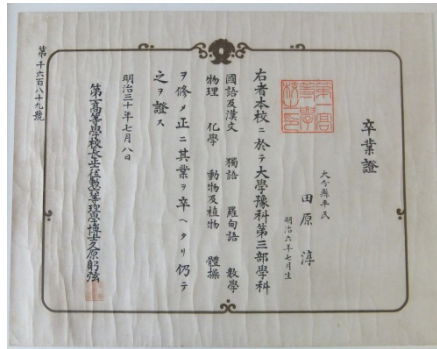 卒業證
大分縣平民
田原淳
明治六年七月生
右者本校ニ於テ大學豫科第三部學科
國語及漢文 獨語 羅甸語 數學
物理 化學 動物及植物 體操
ヲ修メ正ニ其業ヲ卒ヘタリ仍テ
之ヲ證ス
明治三十年七月八日
第一高等學校長正五位勲六等理學博士久原躬弦
第千六百八十九號